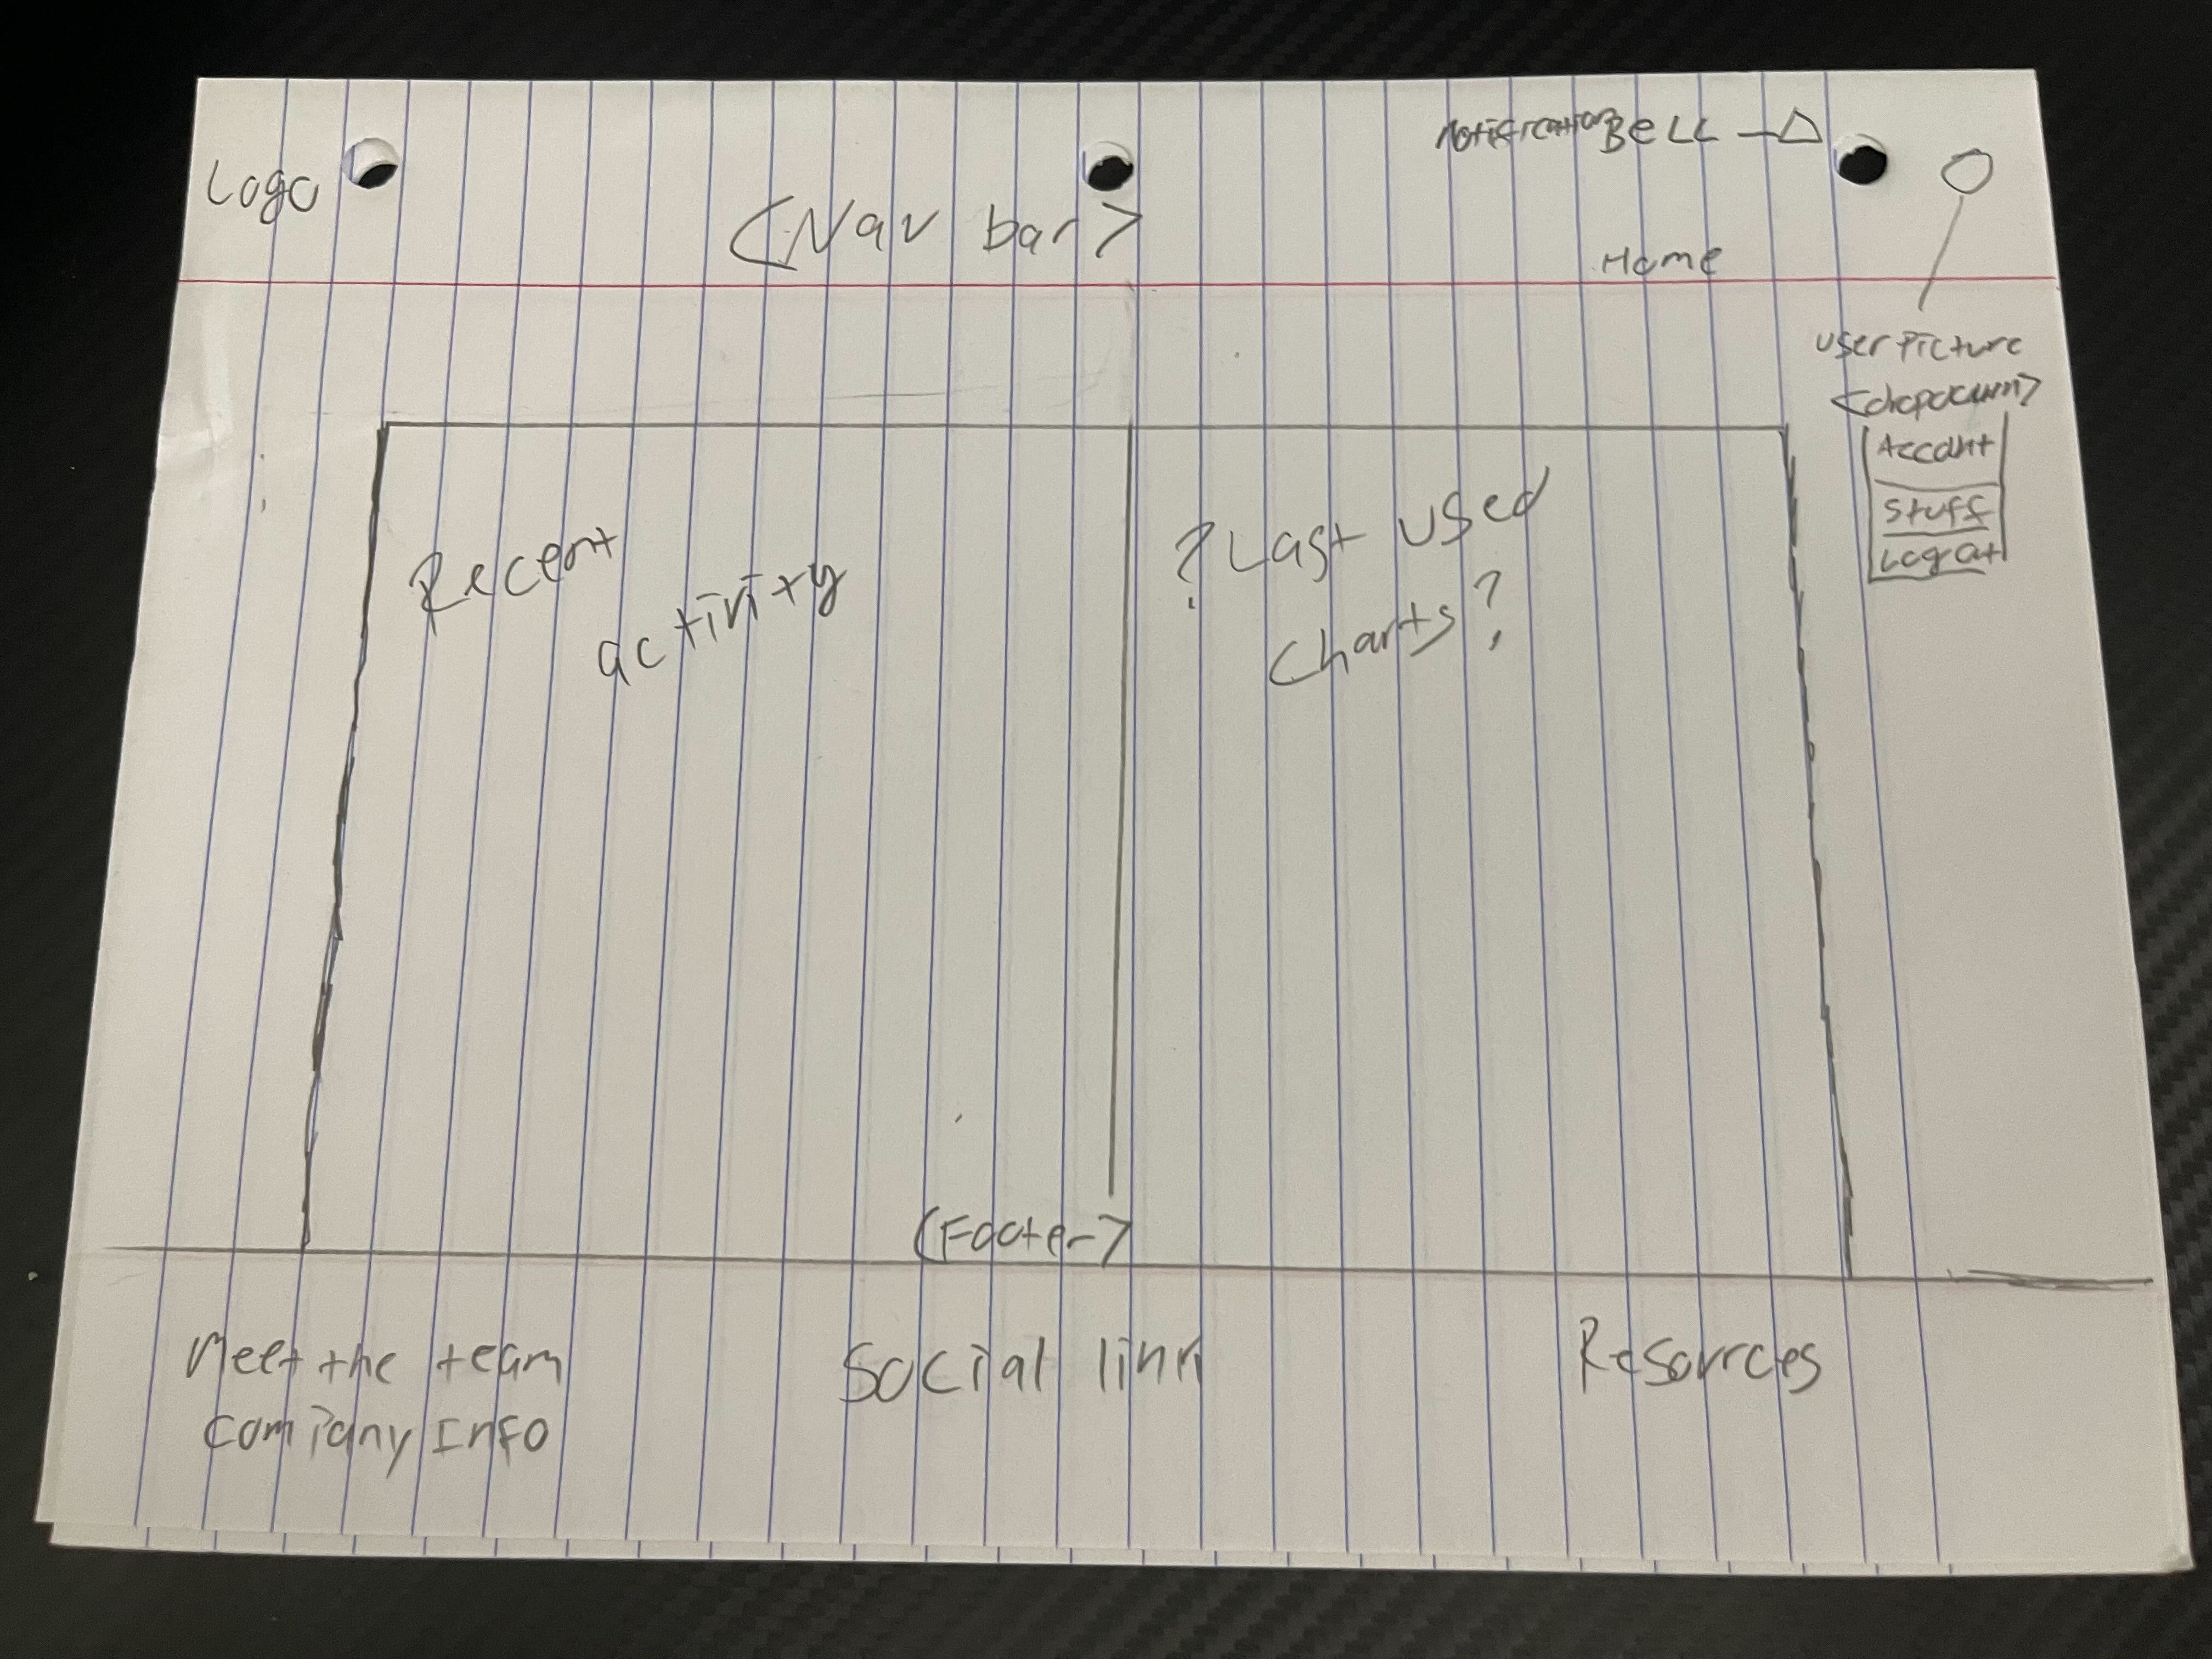 Logo
notification BELL
<Nav bar>
Home
User Picture
<dropdown>
Account
Stuff
Logout
Recent
activity
? Last used
Charts?
<Footer>
Meet the team
Company Info
Social link
Resources